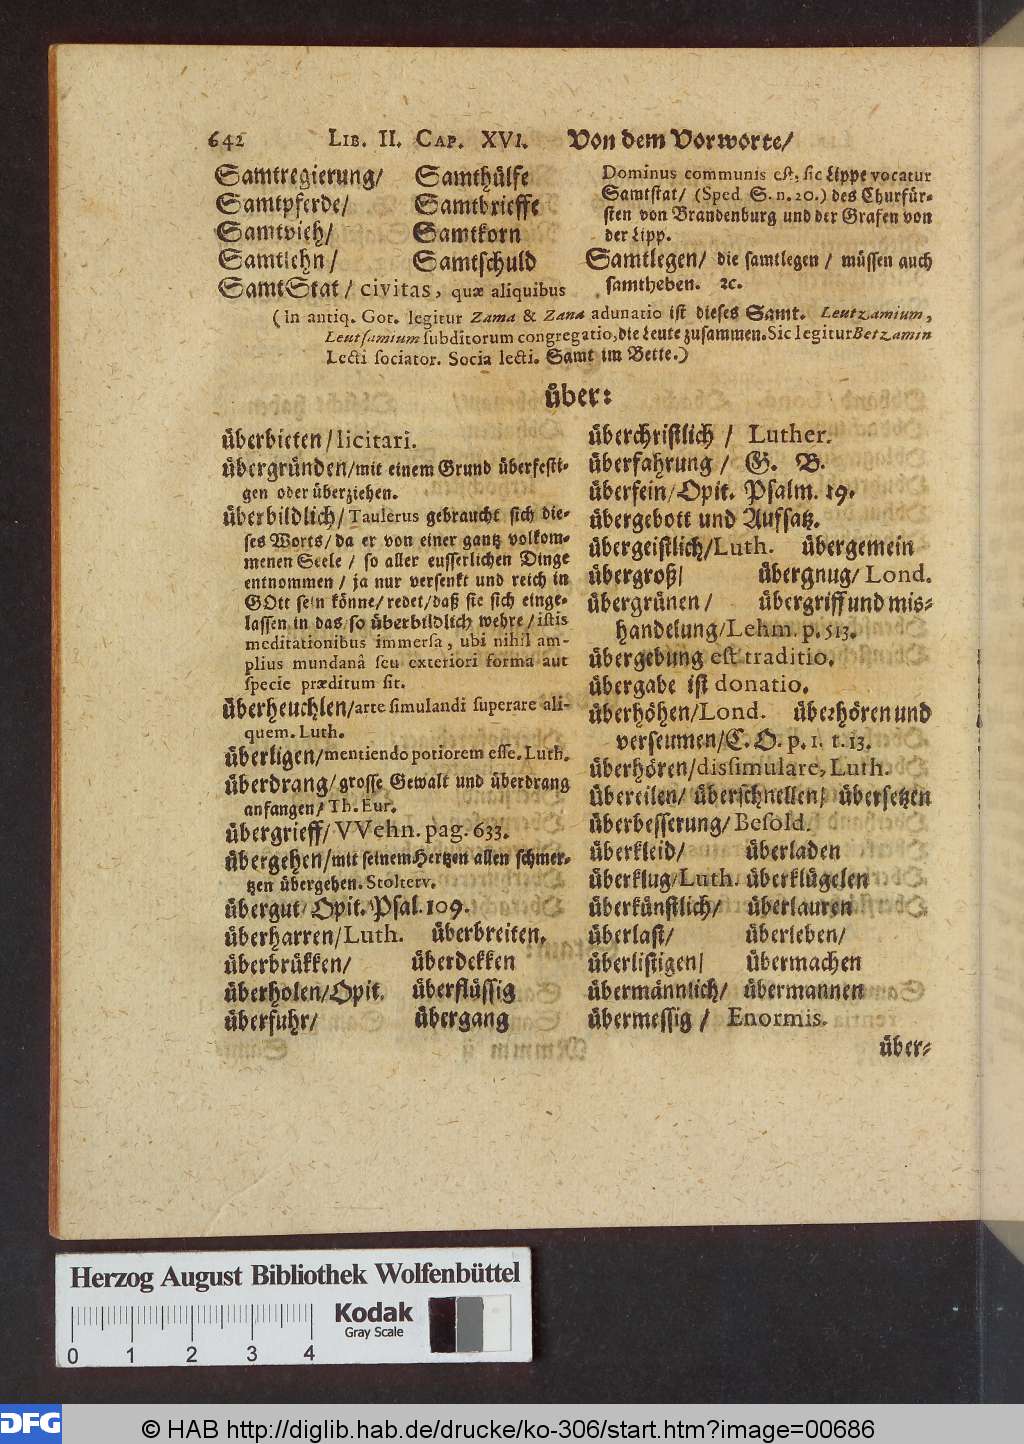 642 LIB. II. CAP. XVI. Von dem Vorworte/
Samtregierung/ Samthülfe
Samtpferde/ Samtbrieffe
Samtvieh/ Samtkorn
Samtlehn/ Samtschuld
SamtStat / civitas, quæ aliquibus
Dominus communis est, sic Lippe vocatur
Samtstat/ (Sped S. n. 20.) des Churfür-
sten von Brandenburg und der Grafen von
der Lipp.
Samtlegen/ die samtlegen / müssen auch
samtheben. ꝛc.
(In antiq. Got. legitur Zama & Zana adunatio ist dieses Samt. Leutzamium,
Leutsamium subditorum congregatio, die Leute zusammen. Sic legitur Betzamin
Lecti sociator. Socia lecti. Samt im Bette.)
über:
überbieten/ licitari.
übergründen/ mit einem Grund überfesti-
gen oder überziehen.
überbildlich/ Taulerus gebraucht sich die-
ses Worts/ da er von einer gantz volkom-
menen Seele / so aller eusserlichen Dinge
entnommen / ja nur versenkt und reich in
GOtt sein könne/ redet/ daß sie sich einge-
lassen in das/ so überbildlich wehre/ istis
meditationibus immersa, ubi nihil am-
plius mundanâ seu exteriori forma aut
specie præditum sit.
überheuchlen/ arte simulandi superare ali-
quem. Luth.
überligen/ mentiendo potiorem esse. Luth.
überdrang/ grosse Gewalt und überdrang
anfangen/ Th. Eur.
übergrieff/ VVehn. pag. 633.
übergehen/ mit seinem Hertzen allen schmer-
tzen übergehen. Stolterv.
übergut/ Opit. Psal. 109.
überharren/ Luth. überbreiten,
überbrükken/ überdekken
überholen/ Opit. überflüssig
überfuhr/ übergang
überchristlich / Luther.
überfahrung / G. B.
überfein/ Opit. Psalm. 19.
übergebott und Aufsatz.
übergeistlich/ Luth. übergemein
übergroß/ übergnug/ Lond.
übergrünen / übergriff und mis-
handelung/ Lehm. p. 513.
übergebung est traditio.
übergabe ist donatio.
überhöhen/ Lond. überhören und
verseumen/ C. O. p. 1. t. 13.
überhören/ dissimulare, Luth.
übereilen/ überschnellen/ übersetzen
überbesserung/ Besold.
überkleid/ überladen
überklug/ Luth. überklügelen
überkünstlich/ überlauren
überlast/ überleben/
überlistigen/ übermachen
übermännlich/ übermannen
übermessig / Enormis.
über-
Herzog August Bibliothek Wolfenbüttel
Kodak
Gray Scale
0 1 2 3 4
DFG
© HAB http://diglib.hab.de/drucke/ko-306/start.htm?image=00686